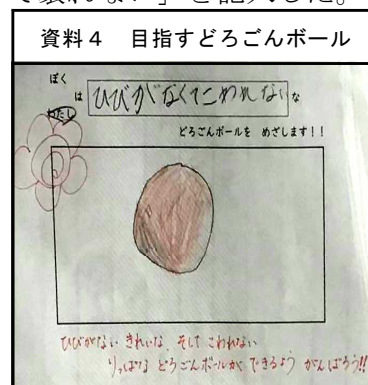 て壊れない」を記入した。
資料4 目指すどろごんボール
ぼく
は ひびがなくてこわれない な
わたし
どろごんボールを めざします!!
ひびがない きれいな そして こわれない
りっぱな どろごんボールが できるよう がんばろう!!